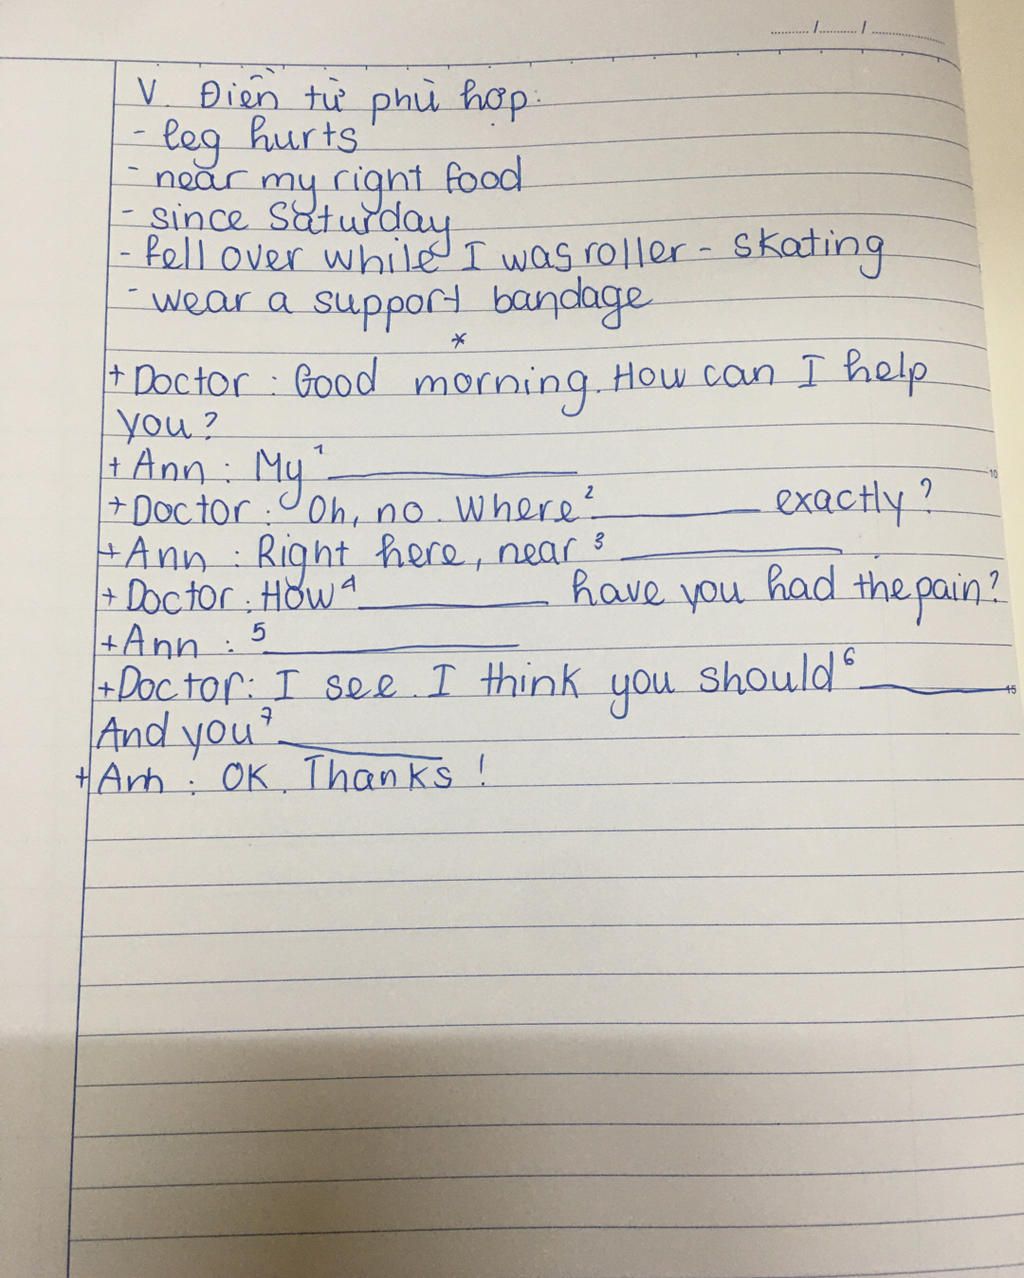 ....../....../......
V. Điền từ phù hợp:
- leg hurts
- near my right food
- since Saturday
- fell over while I was roller - skating
- wear a support bandage
*
+ Doctor : Good morning. How can I help
you?
+ Ann : My 1 __________
+ Doctor : Oh, no. Where 2 __________ exactly?
+ Ann : Right here, near 3 __________.
+ Doctor : How 4 __________ have you had the pain?
+ Ann : 5 __________
+ Doctor : I see. I think you should 6 __________
And you 7 __________
+ Ann : OK. Thanks !
10
15